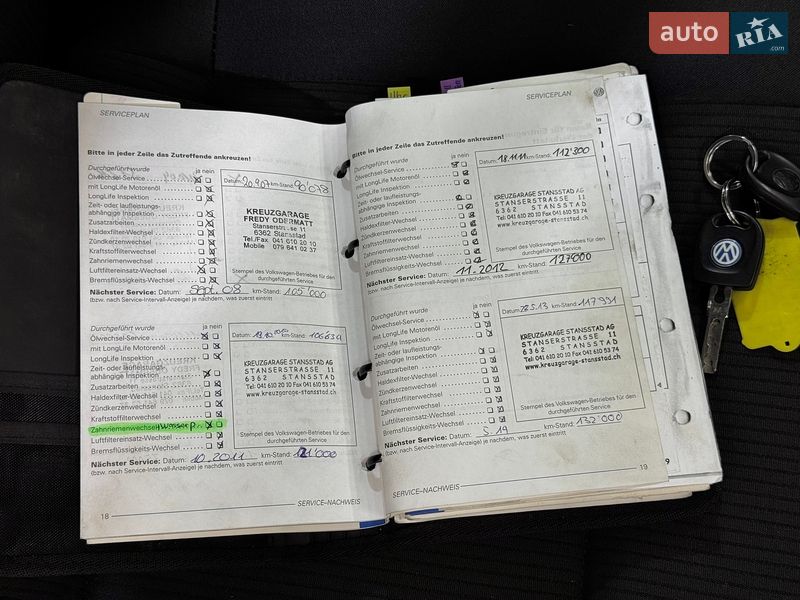 auto RIA .com
SERVICEPLAN
Bitte in jeder Zeile das Zutreffende ankreuzen!
Durchgeführt wurde ja nein
Ölwechsel-Service
mit LongLife Motorenöl
LongLife Inspektion
Zeit- oder laufleistungs-
abhängige Inspektion
Zusatzarbeiten
Haldexfilter-Wechsel
Zündkerzenwechsel
Kraftstoffilterwechsel
Zahnriemenwechsel
Luftfiltereinsatz-Wechsel
Bremsflüssigkeits-Wechsel
Datum: 20.9.07 km-Stand: 90'078
KREUZGARAGE
FREDY ODERMATT
6362 Stansstad
Tel./Fax 041 610 20 10
Mobile 079 641 02 37
Stempel des Volkswagen-Betriebes für den
durchgeführten Service
Nächster Service: Datum: Sept. 08 km-Stand: 105'000
(bzw. nach Service-Intervall-Anzeige) je nachdem, was zuerst eintritt
Durchgeführt wurde ja nein
Ölwechsel-Service
mit LongLife Motorenöl
LongLife Inspektion
Zeit- oder laufleistungs-
abhängige Inspektion
Zusatzarbeiten
Haldexfilter-Wechsel
Zündkerzenwechsel
Kraftstoffilterwechsel
Zahnriemenwechsel + Wasser p.
Luftfiltereinsatz-Wechsel
Bremsflüssigkeits-Wechsel
Datum: km-Stand:
KREUZGARAGE STANSSTAD AG
STANSERSTRASSE 11
6362 STANSSTAD
Tel: 041 610 20 10 Fax 041 610 53 74
www.kreuzgarage-stansstad.ch
Stempel des Volkswagen-Betriebes für den
durchgeführten Service
Nächster Service: Datum: 10.2011 km-Stand: 121'000
(bzw. nach Service-Intervall-Anzeige) je nachdem, was zuerst eintritt
18 SERVICE–NACHWEIS
SERVICEPLAN
Bitte in jeder Zeile das Zutreffende ankreuzen!
Durchgeführt wurde ja nein
Ölwechsel-Service
mit LongLife Motorenöl
LongLife Inspektion
Zeit- oder laufleistungs-
abhängige Inspektion
Zusatzarbeiten
Haldexfilter-Wechsel
Zündkerzenwechsel
Kraftstoffilterwechsel
Zahnriemenwechsel
Luftfiltereinsatz-Wechsel
Bremsflüssigkeits-Wechsel
Datum: 18.11.11 km-Stand: 112'300
KREUZGARAGE STANSSTAD AG
STANSERSTRASSE 11
6362 STANSSTAD
Tel: 041 610 20 10 Fax 041 610 53 74
www.kreuzgarage-stansstad.ch
Stempel des Volkswagen-Betriebes für den
durchgeführten Service
Nächster Service: Datum: 11.2012 km-Stand: 127'000
(bzw. nach Service-Intervall-Anzeige) je nachdem, was zuerst eintritt
Durchgeführt wurde ja nein
Ölwechsel-Service
mit LongLife Motorenöl
LongLife Inspektion
Zeit- oder laufleistungs-
abhängige Inspektion
Zusatzarbeiten
Haldexfilter-Wechsel
Zündkerzenwechsel
Kraftstoffilterwechsel
Zahnriemenwechsel
Luftfiltereinsatz-Wechsel
Bremsflüssigkeits-Wechsel
Datum: km-Stand: 117'931
KREUZGARAGE STANSSTAD AG
STANSERSTRASSE 11
6362 STANSSTAD
Tel: 041 610 20 10 Fax 041 610 53 74
www.kreuzgarage-stansstad.ch
Stempel des Volkswagen-Betriebes für den
durchgeführten Service
Nächster Service: Datum: km-Stand: 132'000
(bzw. nach Service-Intervall-Anzeige) je nachdem, was zuerst eintritt
SERVICE–NACHWEIS 19